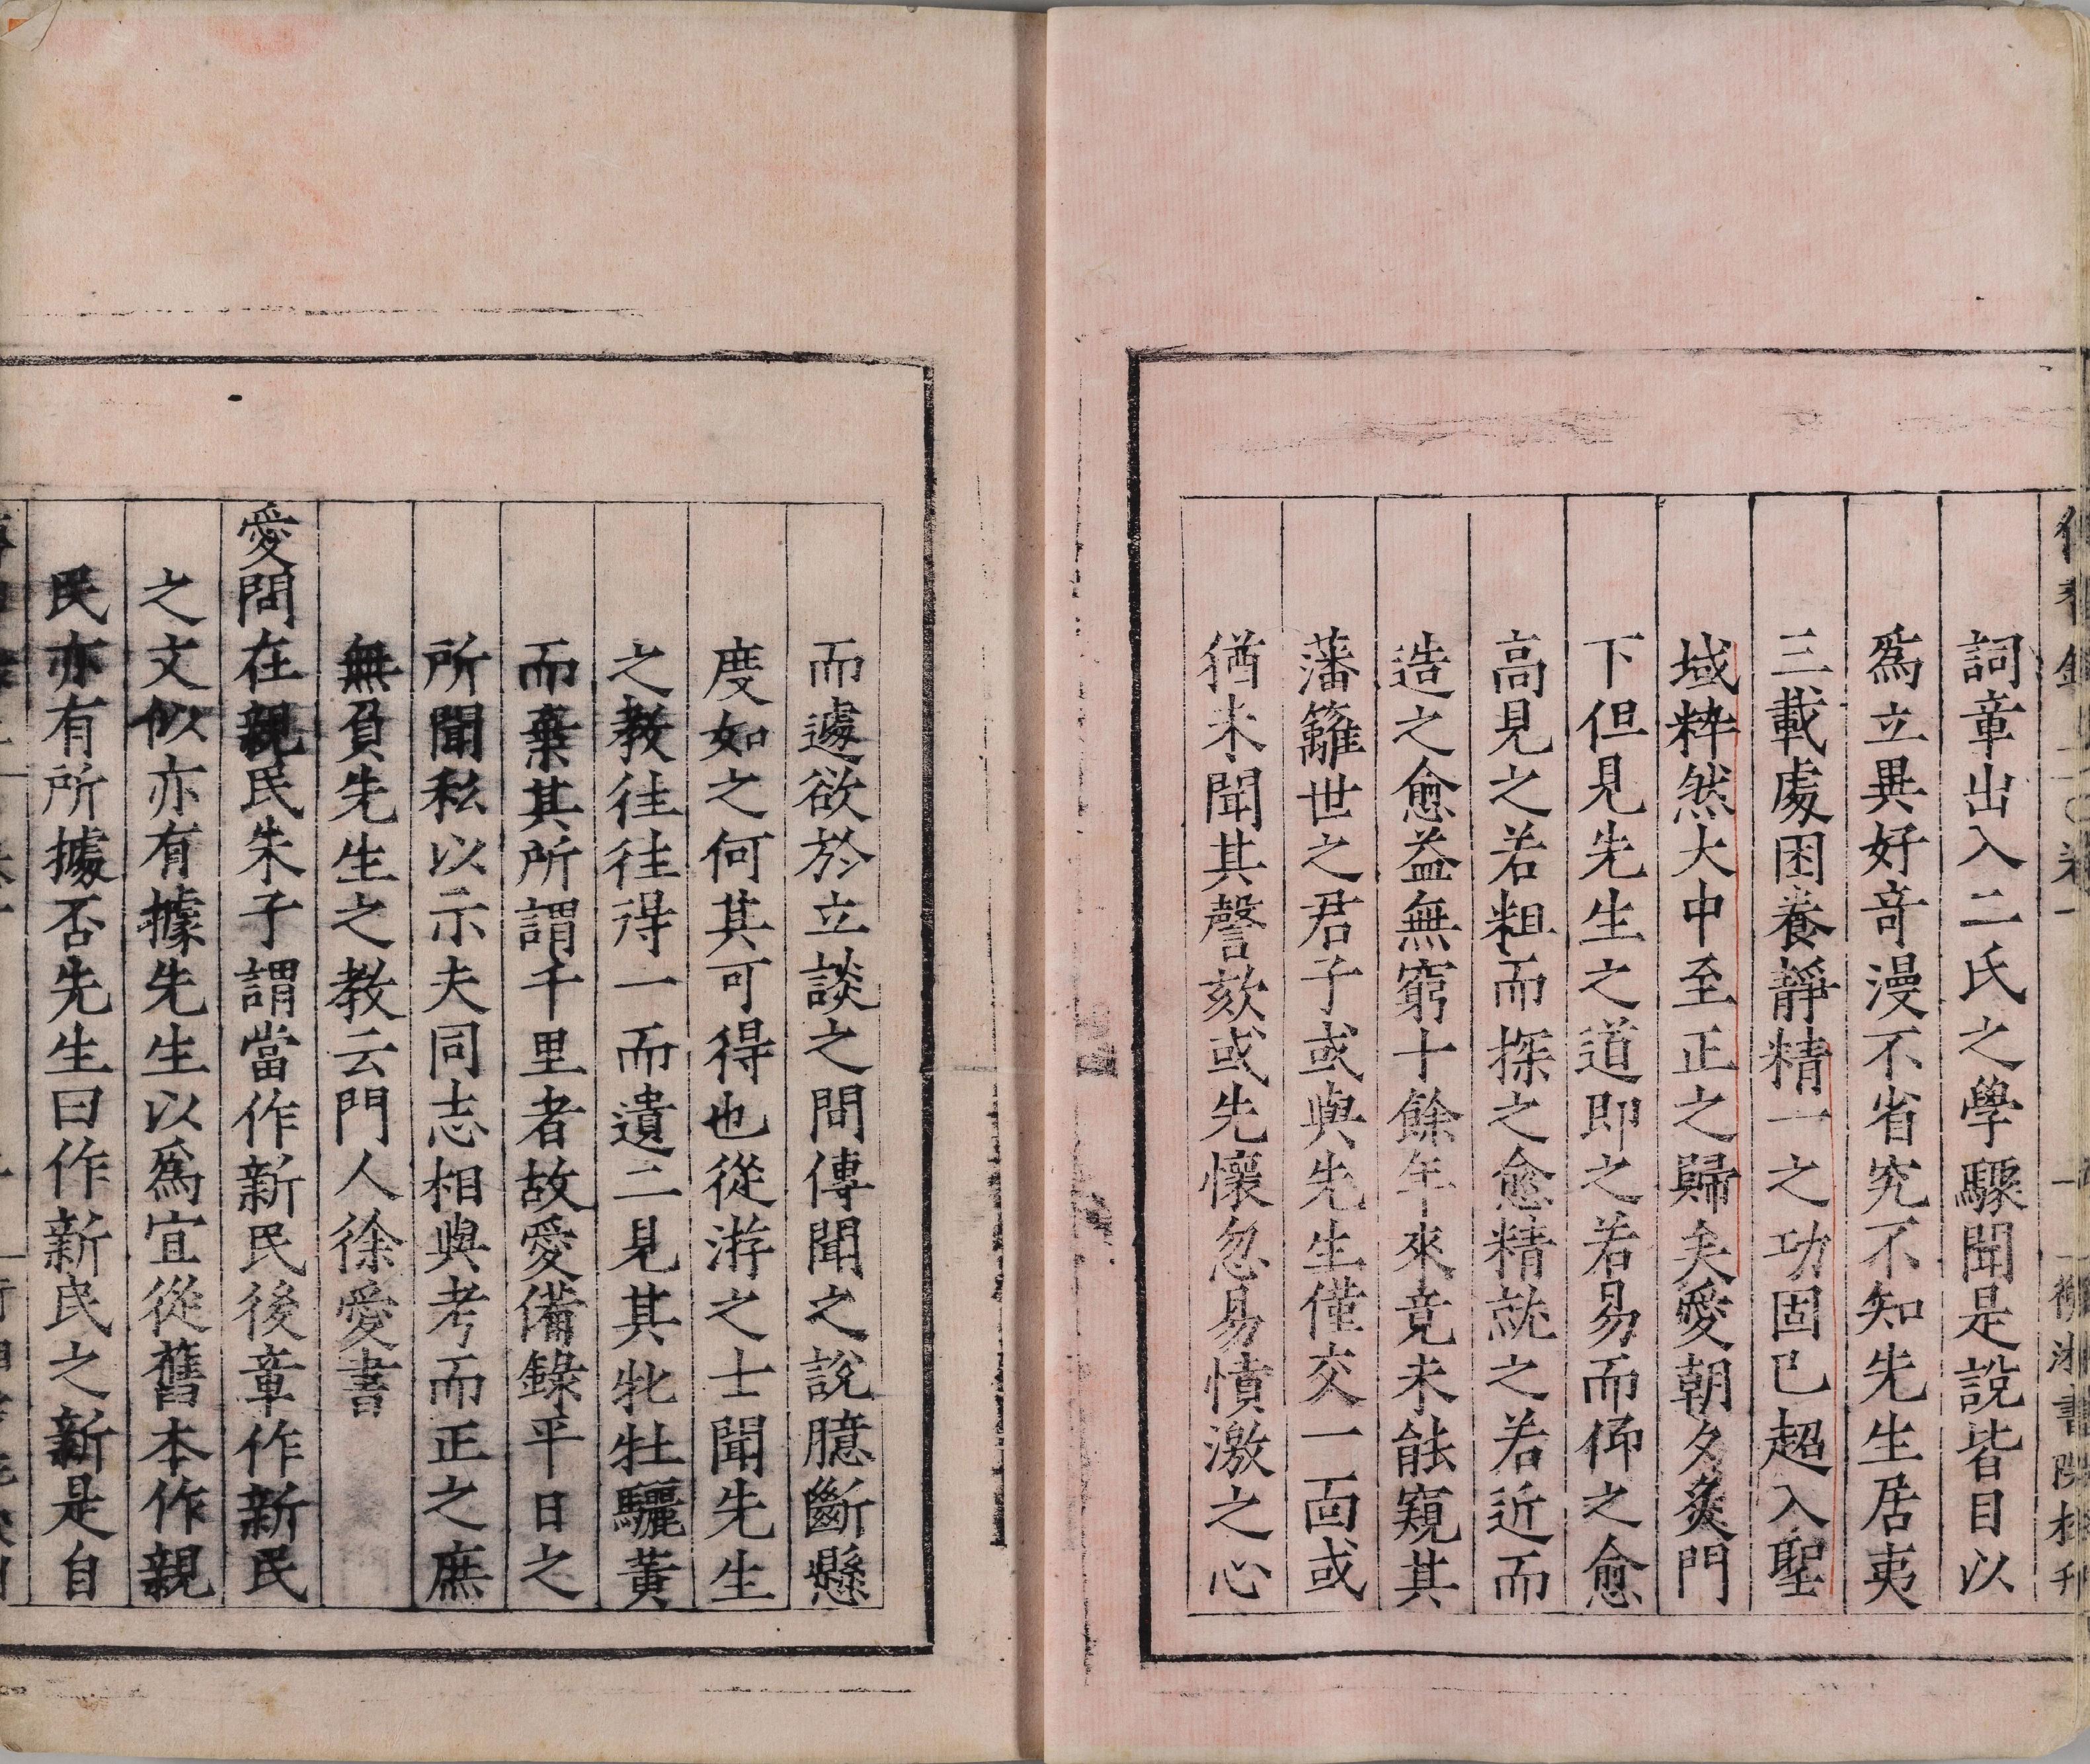 詞章出入二氏之學驟聞是說皆目以
爲立異好竒漫不省究不知先生居夷
三載處困養靜精一之功固已超入聖
域粹然大中至正之歸矣愛朝夕炙門
下但見先生之道即之若易而仰之愈
高見之若粗而探之愈精就之若近而
造之愈益無窮十餘年來竟未能窺其
藩籬世之君子或與先生僅交一面或
猶未聞其謦欬或先懷忽易憤激之心
而遽欲於立談之間傳聞之說臆斷懸
度如之何其可得也從游之士聞先生
之教徃徃得一而遺二見其牝牡驪黃
而棄其所謂千里者故愛備錄平日之
所聞私以示夫同志相與考而正之庶
無負先生之教云門人徐愛書
愛問在親民朱子謂當作新民後章作新民
之文似亦有據先生以爲宜從舊本作親
民亦有所據否先生曰作新民之新是自